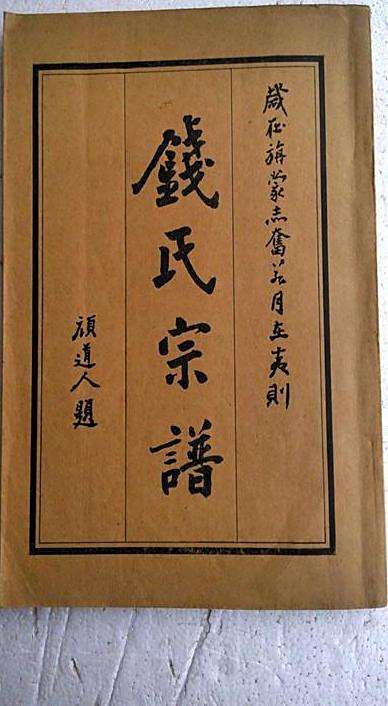 歲在旃蒙赤奮若月在夷則
錢氏宗譜
頑道人題